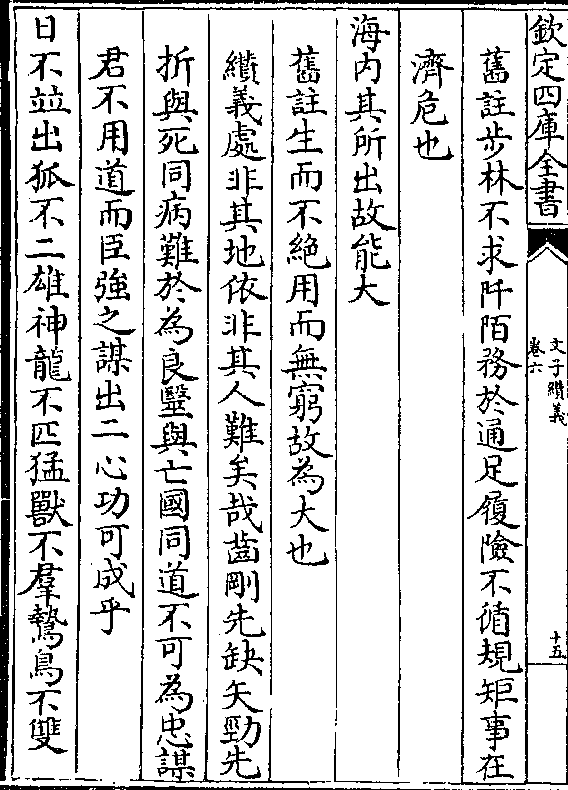 欽定四庫全書
文子纘義
卷六
十五
舊註步林不求阡陌務於通足履險不循規矩事在
濟危也
海内其所出故能大
舊註生而不絶用而無窮故為大也
纘義處非其地依非其人難矣哉齒剛先缺矢勁先
折與死同病難於為良毉與亡國同道不可為忠謀
君不用道而臣強之謀出二心功可成乎
日不竝出狐不二雄神龍不匹猛獸不羣鷙鳥不雙